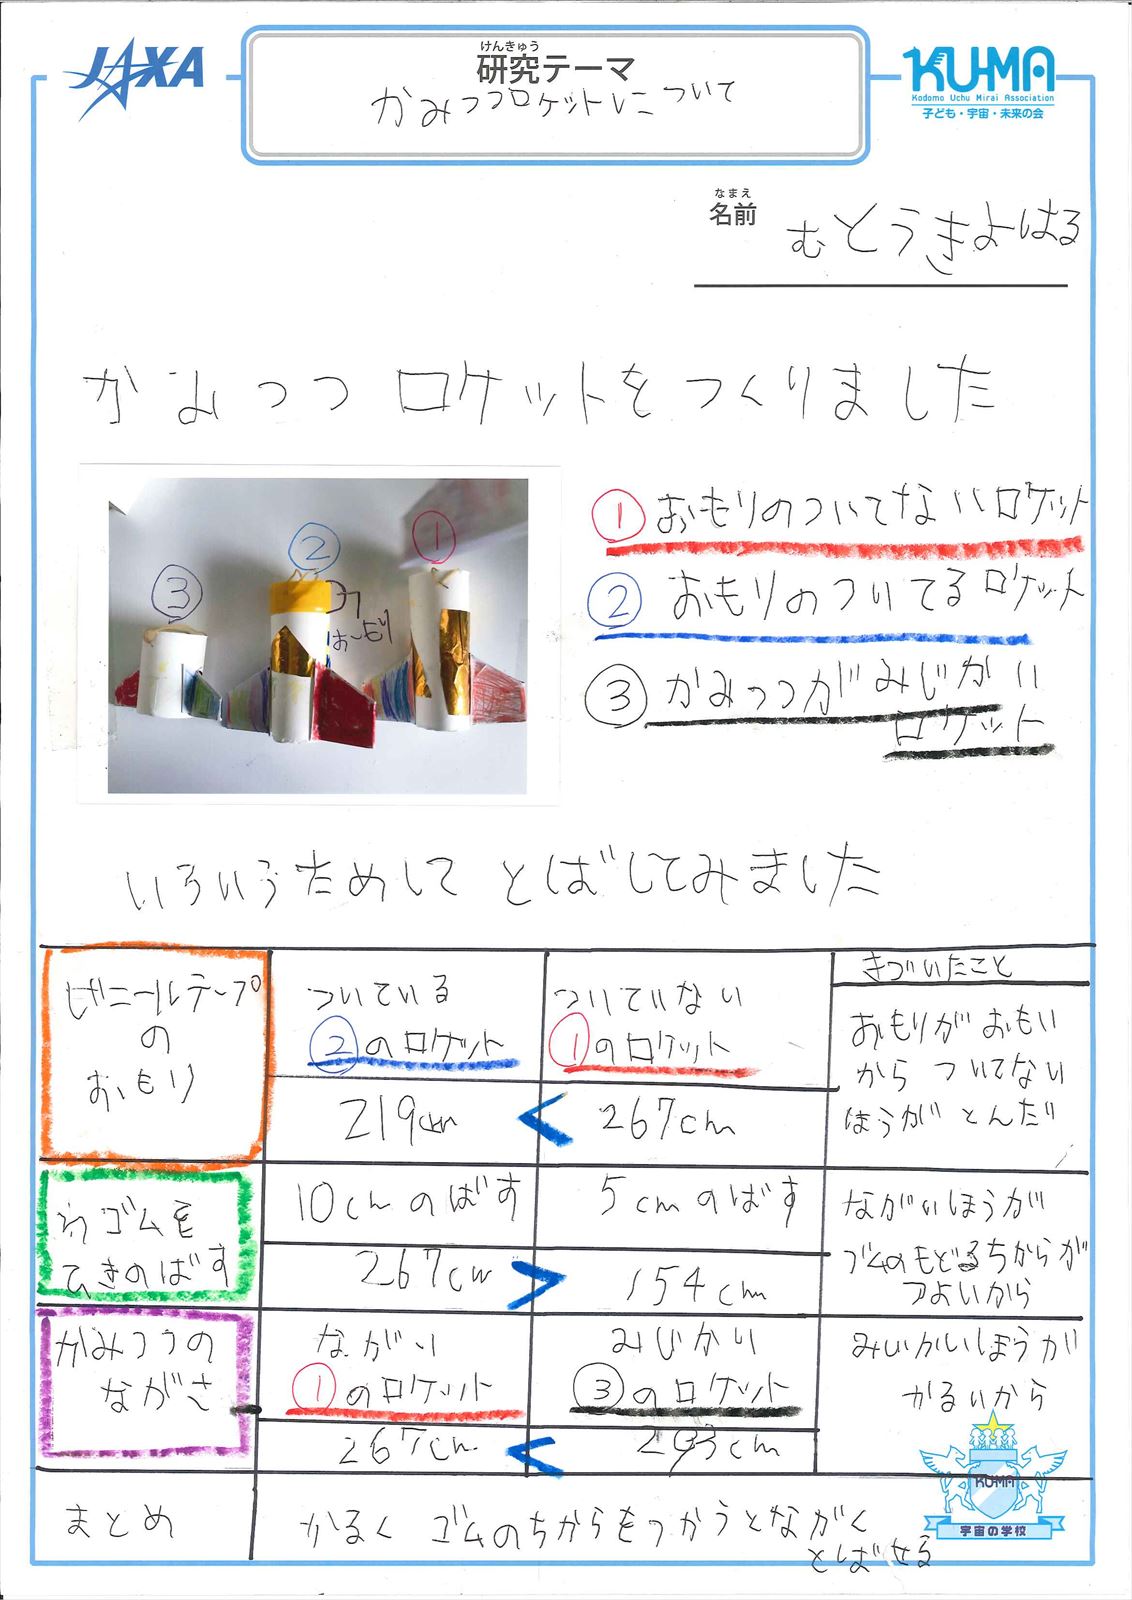 JAXA
けんきゅう
研究テーマ
かみつつロケットについて
KU-MA
Kodomo Uchu Mirai Association
子ども・宇宙・未来の会
なまえ
名前
むとうきよはる
かみつつロケットをつくりました
① ② ③
おもり
①おもりのついてないロケット
②おもりのついてるロケット
③かみつつがみじかい
ロケット
いろいろためしてとばしてみました
ビニールテープ
の
おもり
ついている
②のロケット
ついていない
①のロケット
219cm < 267cm
きづいたこと
おもりがおもい
からついてない
ほうがとんだ
わゴムを
ひきのばす
10cmのばす
5cmのばす
267cm > 154cm
ながいほうが
ゴムのもどるちからが
つよいから
かみつつの
ながさ
ながい
①のロケット
みじかい
③のロケット
267cm < 293cm
みじかいほうが
かるいから
KU-MA
宇宙の学校
まとめ
かるくゴムのちからをつかうとながく
とばせる